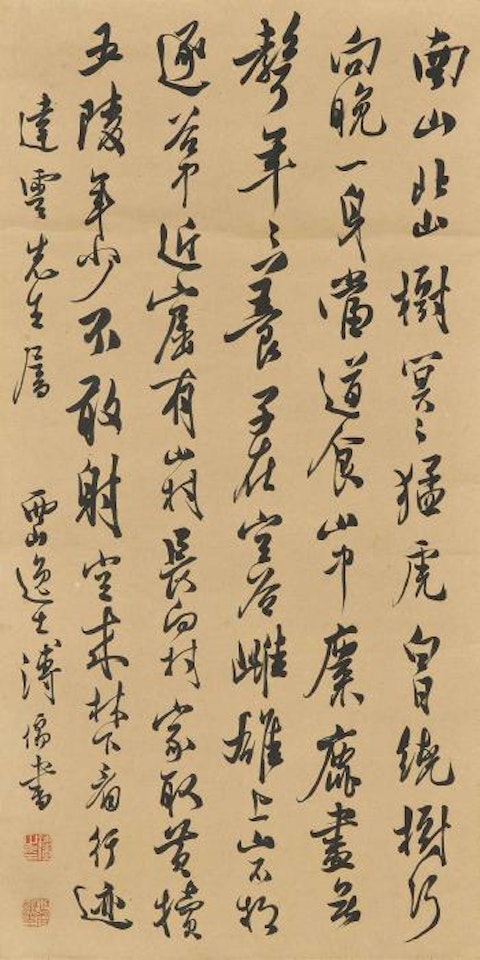 南山北山樹冥〻猛虎白日繞樹行
向晚一身當道食山中麋鹿盡無
聲年〻養子在空谷雌雄上山不相
逐谷中近崫有山村長向村家取黃犢
五陵年少不敢射空來林下看行迹
達雲先生屬 西山逸士溥儒書